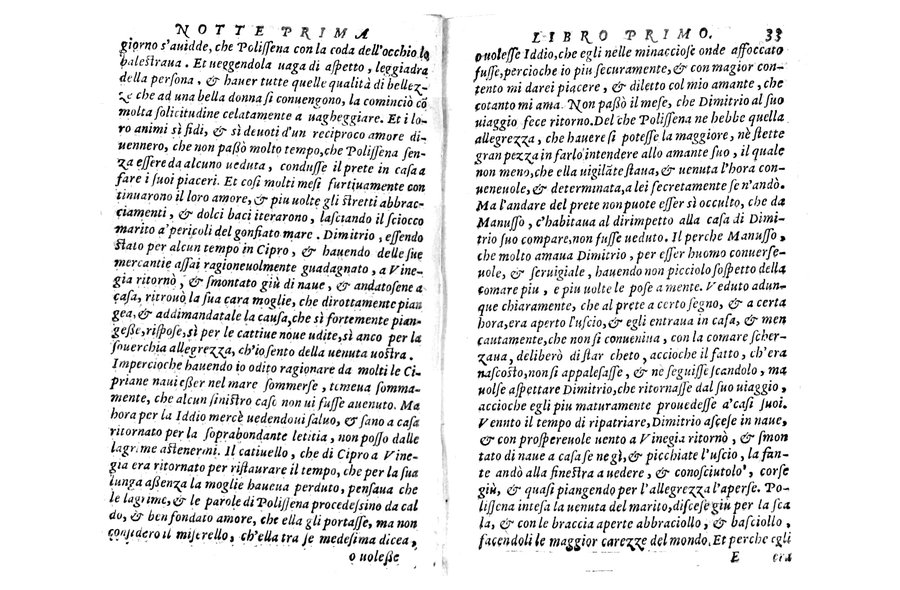 NOTTE PRIMA
giorno s'auidde, che Polissena con la coda dell'occhio lo
palestraua. Et ueggendola uaga di aspetto, leggiadra
della persona, & hauer tutte quelle qualità di bellez-
ze che ad una bella donna si conuengono, la cominciò cō
molta solicitudine celatamente a uagheggiare. Et i lo-
ro animi sì fidi, & sì deuoti d'un reciproco amore di-
uennero, che non paßò molto tempo, che Polissena sen-
za essere da alcuno ueduta, condusse il prete in casa a
fare i suoi piaceri. Et così molti mesi furtiuamente con
tinuarono il loro amore, & piu uolte gli stretti abbrac-
ciamenti, & dolci baci iterarono, lasciando il sciocco
marito a'pericoli del gonfiato mare. Dimitrio, essendo
stato per alcun tempo in Cipro, & hauendo delle sue
mercantie assai ragioneuolmente guadagnato, a Vine-
gia ritornò, & smontato giù di naue, & andatosene a
casa, ritrouò la sua cara moglie, che dirottamente pian
gea, & addimandatale la causa, che sì fortemente pian-
geße, rispose, sì per le cattiue noue udite, sì anco per la
souerchia allegrezza, ch'io sento della uenuta uostra.
Impercioche hauendo io odito ragionare da molti le Ci-
priane naui esser nel mare sommerse, temeua somma-
mente, che alcun sinistro caso non ui fusse auenuto. Ma
hora per la Iddio mercè uedendoui saluo, & sano a casa
ritornato per la soprabondante letitia, non posso dalle
lagrime astenermi. Il catiuello, che di Cipro a Vine-
gia era ritornato per ristaurare il tempo, che per la sua
lunga assenza la moglie haueua perduto, pensaua che
le lagrime, & le parole di Polissena procedessino da cal
do, & ben fondato amore, che ella gli portasse, ma non
considero il misrello, ch'ella tra se medesima dicea,
o uoleße
LIBRO PRIMO. 33
o uolesse Iddio, che egli nelle minacciose onde affoccato
fusse, percioche io piu securamente, & con magior con-
tento mi darei piacere, & diletto col mio amante, che
cotanto mi ama. Non paßò il mese, che Dimitrio al suo
uiaggio fece ritorno. Del che Polissena ne hebbe quella
allegrezza, che hauere si potesse la maggiore, nè stette
gran pezza in farlo intendere allo amante suo, il quale
non meno, che ella uigilāte staua, & uenuta l'hora con-
ueneuole, & determinata, a lei secretamente se n'andò.
Ma l'andare del prete non puote esser sì occulto, che da
Manusso, c'habitaua al dirimpetto alla casa di Dimi-
trio suo compare, non fusse ueduto. Il perche Manusso,
che molto amaua Dimitrio, per esser huomo conuerse-
uole, & seruigiale, hauendo non picciolo sospetto della
comare piu, e piu uolte le pose a mente. Veduto adun-
que chiaramente, che al prete a certo segno, & a certa
hora, era aperto l'uscio, & egli entraua in casa, & men
cautamente, che non si conueniua, con la comare scher-
zaua, deliberò di star cheto, accioche il fatto, ch'era
nascosto, non si appalesasse, & ne seguisse scandolo, ma
uolse aspettare Dimitrio, che ritornasse dal suo uiaggio,
accioche egli piu maturamente prouedesse a'casi suoi.
Venuto il tempo di ripatriare, Dimitrio ascese in naue,
& con prospereuole uento a Vinegia ritornò, & smon
tato di naue a casa se ne gì, & picchiate l'uscio, la fan-
te andò alla finestra a uedere, & conosciutolo, corse
giù, & quasi piangendo per l'allegrezza l'aperse. Po-
lissena intesa la uenuta del marito, discese giù per la sca
la, & con le braccia aperte abbracciollo, & basciollo,
facendoli le maggior carezze del mondo. Et perche egli
E era